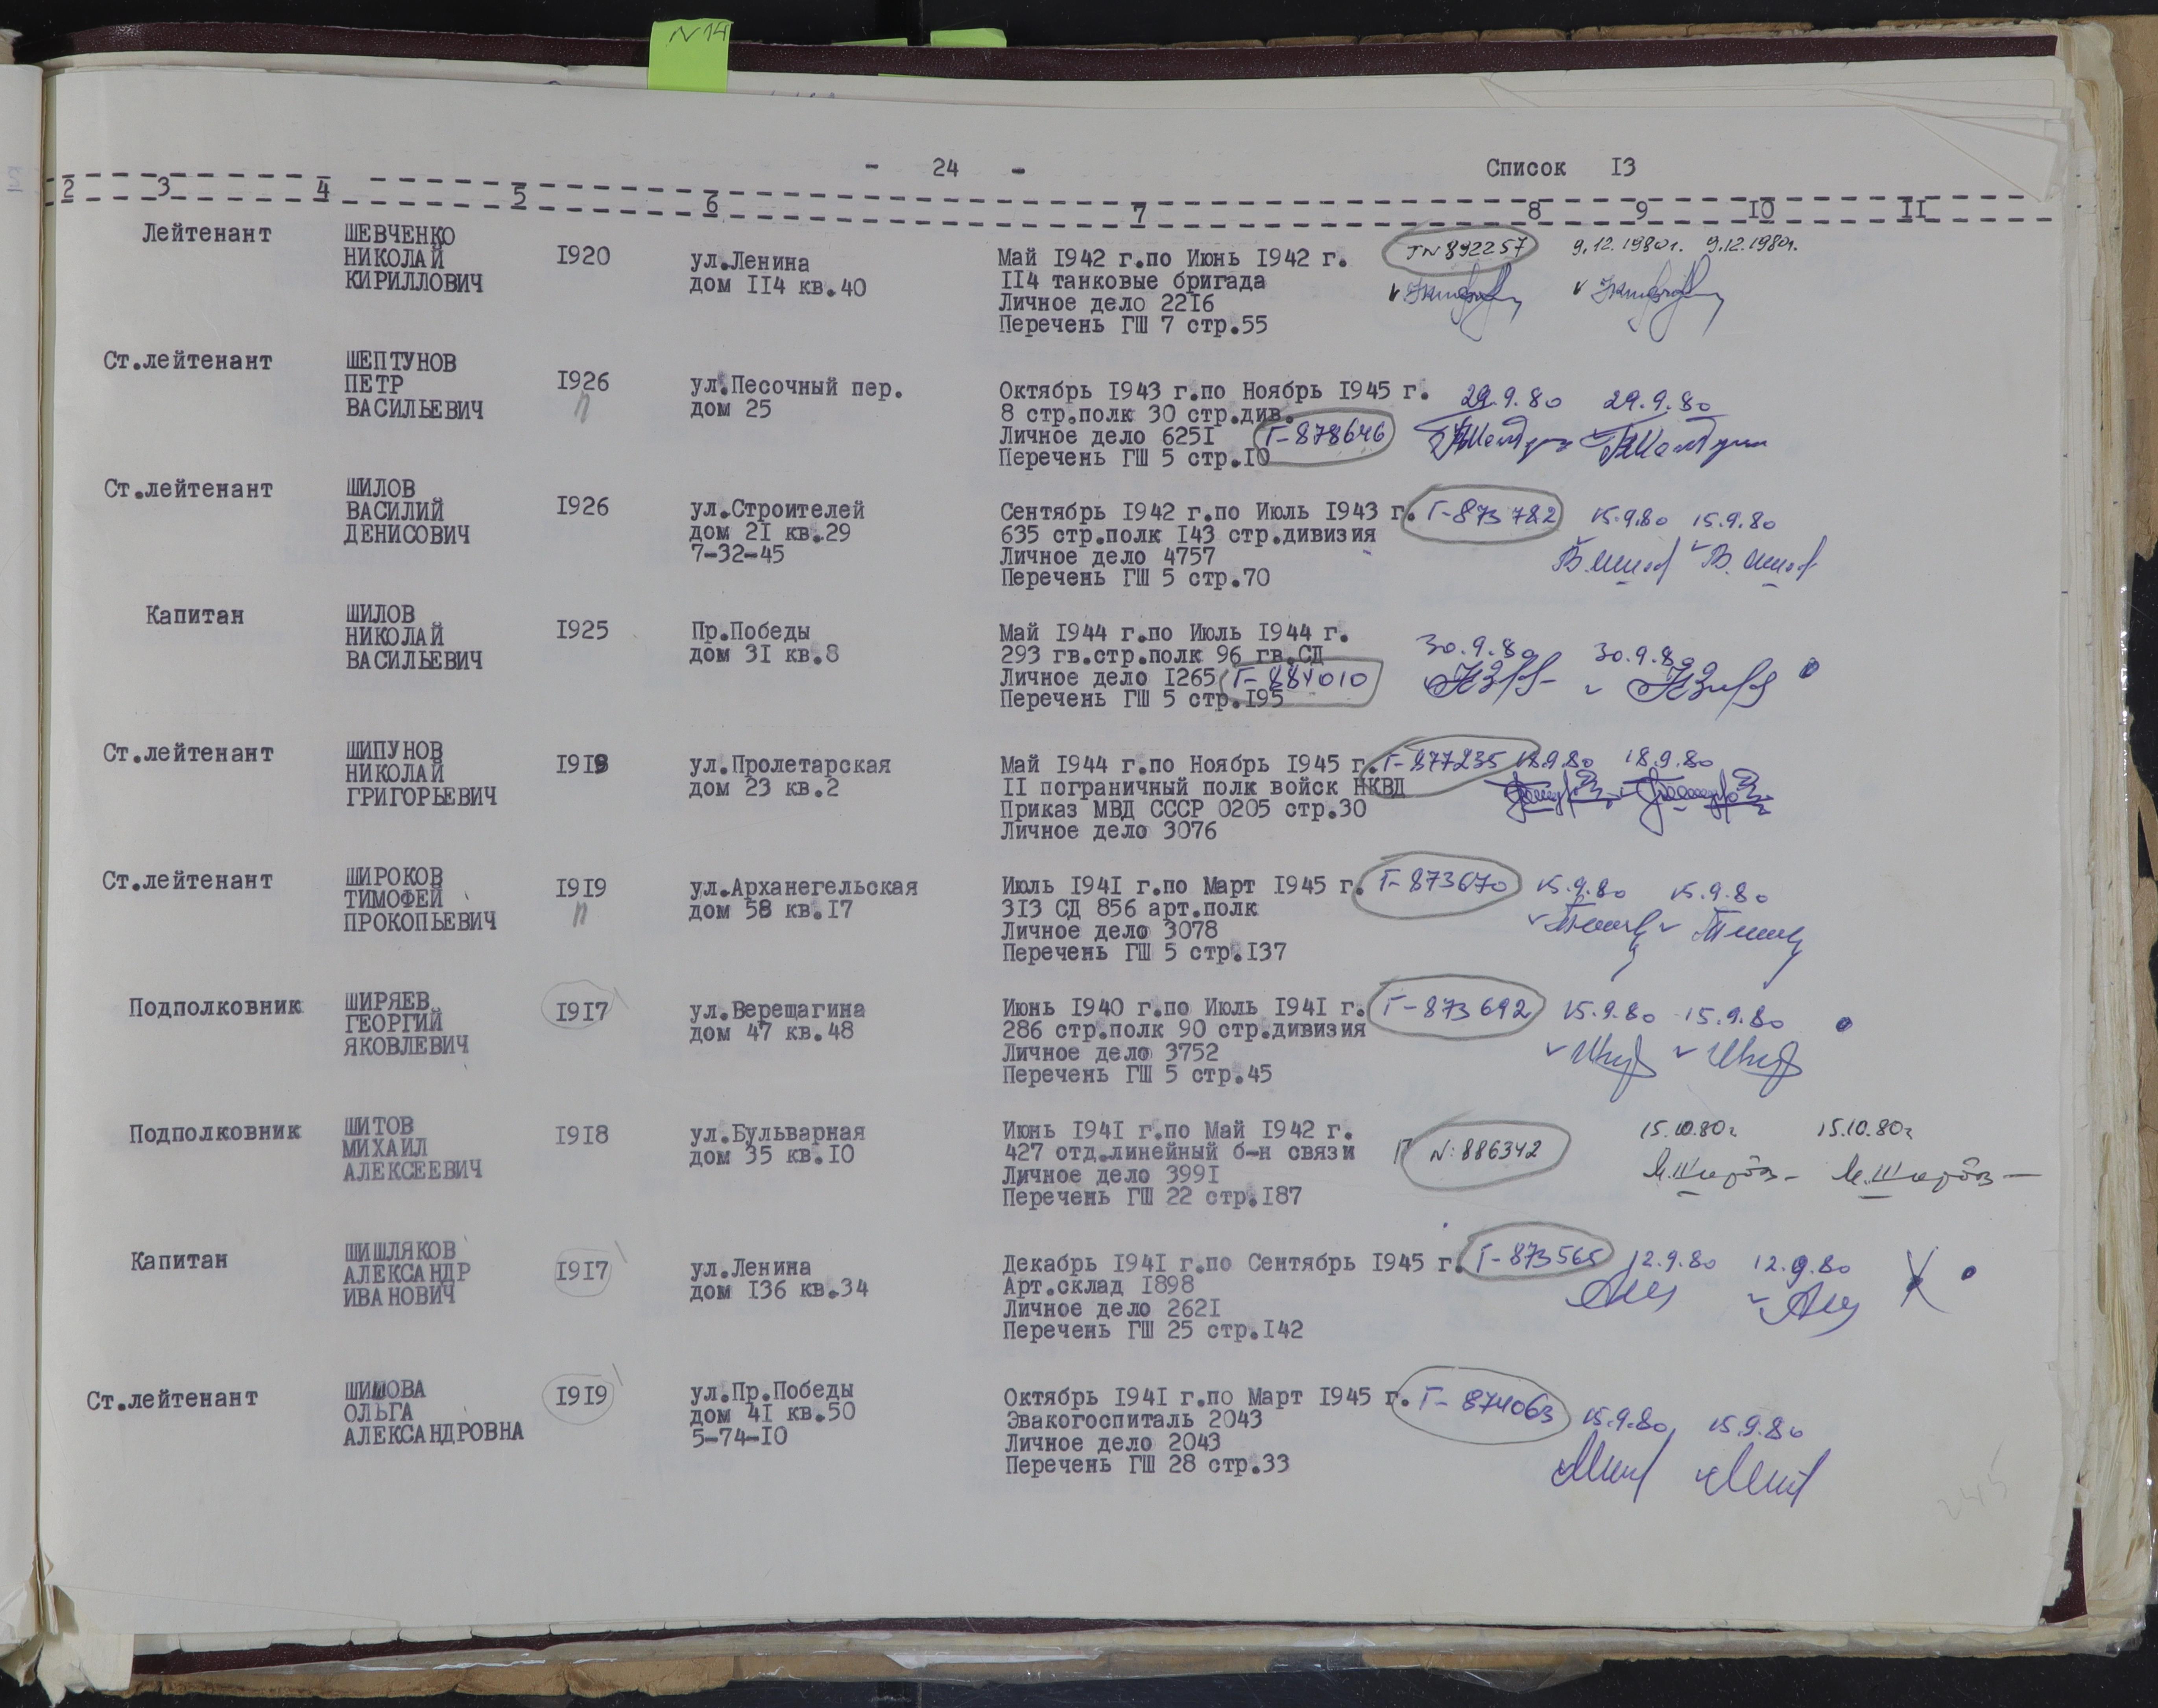 N 14
- 24 -
Список I3
2 3 4 5 6 7 8 9 IO II
Лейтенант ШЕВЧЕНКО НИКОЛАЙ КИРИЛЛОВИЧ I920
ул.Ленина
дом II4 кв.40
Май I942 г.по Июнь I942 г.
II4 танковые бригада
Личное дело 22I6
Перечень ГШ 7 стр.55
892257 9.12.1980г. 9.12.1980г.
Ст.лейтенант ШЕПТУНОВ ПЕТР ВАСИЛЬЕВИЧ I926
п
ул.Песочный пер.
дом 25
Октябрь I943 г.по Ноябрь I945 г.
8 стр.полк 30 стр.див.
Личное дело 625I
Перечень ГШ 5 стр.IO
Г-878646 29.9.80 29.9.80
Ст.лейтенант ШИЛОВ ВАСИЛИЙ ДЕНИСОВИЧ I926
ул.Строителей
дом 2I кв.29
7-32-45
Сентябрь I942 г.по Июль I943 г.
635 стр.полк I43 стр.дивизия
Личное дело 4757
Перечень ГШ 5 стр.70
Г-873782 15.9.80 15.9.80
В.Шилов В.Шилов
Капитан ШИЛОВ НИКОЛАЙ ВАСИЛЬЕВИЧ I925
Пр.Победы
дом 3I кв.8
Май I944 г.по Июль I944 г.
293 гв.стр.полк 96 гв.СД
Личное дело I265
Перечень ГШ 5 стр.I95
Г-884010 30.9.80 30.9.80
Ст.лейтенант ШИПУНОВ НИКОЛАЙ ГРИГОРЬЕВИЧ
ул.Пролетарская
дом 23 кв.2
Май I944 г.по Ноябрь I945 г.
II пограничный полк войск НКВД
Приказ МВД СССР 0205 стр.30
Личное дело 3076
Г-877235 18.9.80 18.9.80
Ст.лейтенант ШИРОКОВ ТИМОФЕЙ ПРОКОПЬЕВИЧ I9I9
п
ул.Арханегельская
дом 58 кв.I7
Июль I94I г.по Март I945 г.
3I3 СД 856 арт.полк
Личное дело 3078
Перечень ГШ 5 стр.I37
Г-873670 15.9.80 15.9.80
Подполковник ШИРЯЕВ ГЕОРГИЙ ЯКОВЛЕВИЧ I9I7
ул.Верещагина
дом 47 кв.48
Июнь I940 г.по Июль I94I г.
286 стр.полк 90 стр.дивизия
Личное дело 3752
Перечень ГШ 5 стр.45
Г-873692 15.9.80 15.9.80
Подполковник ШИТОВ МИХАИЛ АЛЕКСЕЕВИЧ I9I8
ул.Бульварная
дом 35 кв.IO
Июнь I94I г.по Май I942 г.
427 отд.линейный б-н связи
Личное дело 399I
Перечень ГШ 22 стр.I87
Г N: 886342 15.10.80г 15.10.80г
Капитан ШИШЛЯКОВ АЛЕКСАНДР ИВАНОВИЧ I9I7
ул.Ленина
дом I36 кв.34
Декабрь I94I г.по Сентябрь I945 г.
Арт.склад I898
Личное дело 262I
Перечень ГШ 25 стр.I42
Г-873565 12.9.80 12.9.80
Ст.лейтенант ШИШОВА ОЛЬГА АЛЕКСАНДРОВНА I9I9
ул.Пр.Победы
дом 4I кв.50
5-74-IO
Октябрь I94I г.по Март I945 г.
Эвакогоспиталь 2043
Личное дело 2043
Перечень ГШ 28 стр.33
Г-874063 15.9.80 15.9.80
245